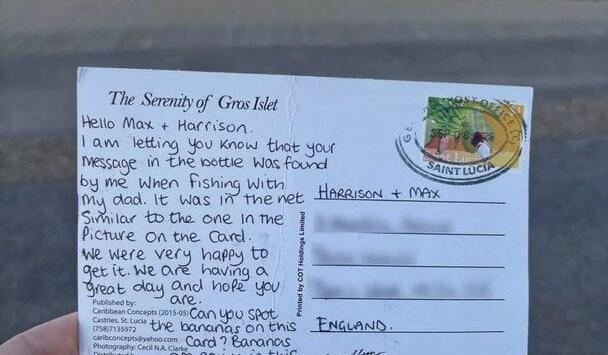 The Serenity of Gros Islet
Hello Max + Harrison.
I am letting you know that your
message in the bottle was found
by me when fishing with
my dad. It was in the net
Similar to the one in the
Picture on the Card.
We were very happy to
get it. We are having a
great day and hope you
are.
Can you spot
the bananas on this
Card? Bananas
Published by:
Caribbean Concepts (2015-05)
Castries, St. Lucia
(758)7135972
caribconcepts@yahoo.com
Photography: Cecil N.A. Clarke
Printed by COT Holdings Limited
POST OFFICE
SAINT LUCIA
HARRISON + MAX
ENGLAND.